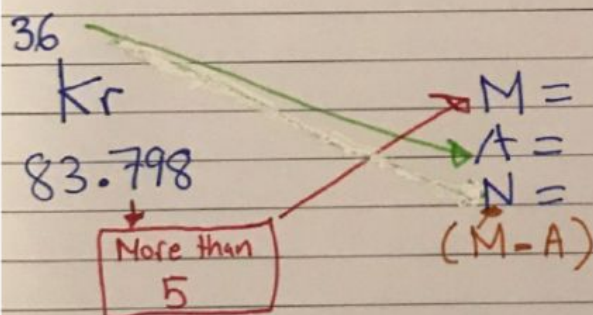 36
Kr
83.798
More than
5
M =
A =
N =
(M-A)